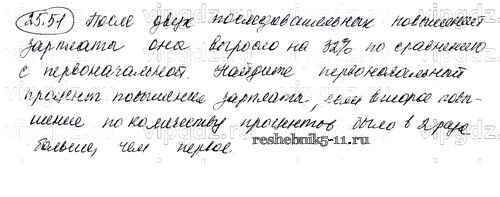 25.51 После двух последовательных повышений
зарплаты она выросла на 32% по сравнению
с первоначальной. Найдите первоначальный
процент повышения зарплаты, если второе повы-
шение по количеству процентов было в 2 раза
больше, чем первое.
reshebnik5-11.ru